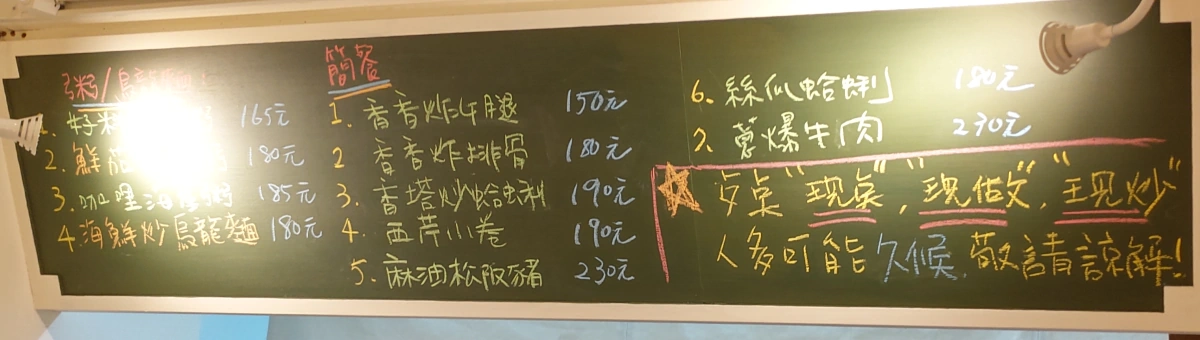 粥/烏龍麵
165元
2. 鮮 180元
3. 咖哩海鮮粥 185元
4. 海鮮炒烏龍麵 180元
簡餐
1. 香香炸牛腿 150元
2 香香炸排骨 180元
3. 香塔炒蛤蜊 190元
4. 西芹小卷 190元
5. 麻油松阪豬 230元
6. 絲瓜蛤蜊 180元
7. 蔥爆牛肉 230元
"現桌", "現做", "現炒"
人多可能久候, 敬請諒解!